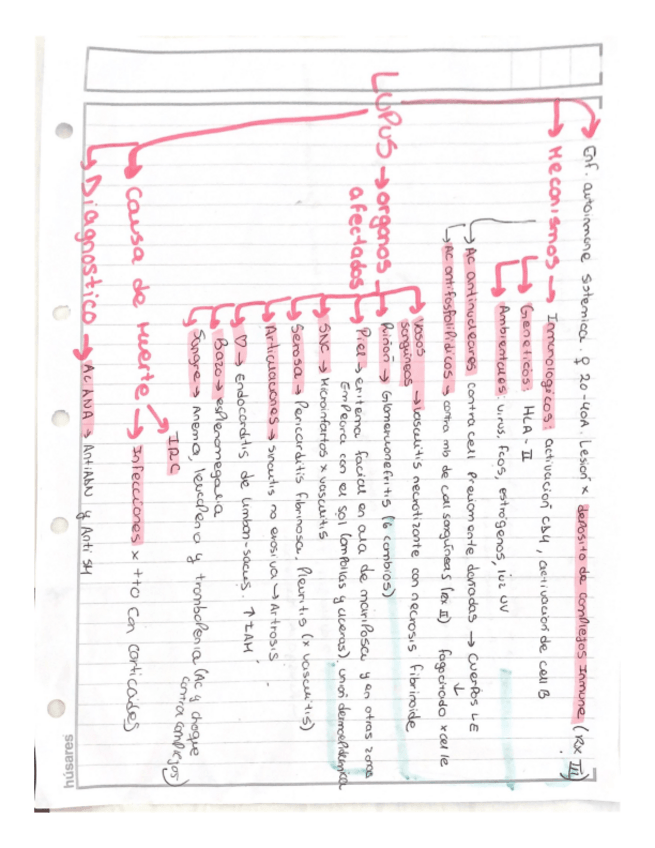 Enf. autoinmune sistemica ♀ 20-40A. Lesión x deposito de complejos Inmune (Rx III)
Mecanismos → Inmunologicos: activación CD4, activación de cell B
Geneticos: HLA-II
Ambientales: virus, fcos, estrogenos, luz UV
→ AC antinucleares contra cell previamente dañadas → Cuerpos LE
→ AC antifosfolipídicos → contra mb de cell sanguíneas (rx II) fagocitado x cel le
LUPUS → organos afectados
vasos sanguineos → vasculitis necrotizante con necrosis fibrinoide
Riñon → Glomerulonefritis (6 cambios)
Piel → eritema facial en ala de mariposa y en otras zonas
Empeora con el sol (ampollas y ulceras), union dermoepidermica
SNC → Microinfartos x vasculitis
Serosa → Pericarditis fibrinosa, Pleuritis (x vasculitis)
Articulaciones → sinovitis no erosiva → Artrosis
♡ → Endocarditis de limbon-sacus. ↑ IAM,
Bazo → esplenomegalia
Sangre → Anemia, leucopenia y trombopenia (AC y choque contra complejos)
Causa de Muerte → IRC
Infecciones x tto con corticoides
Diagnostico → AC ANA → AntiADN y Anti SM
húsares